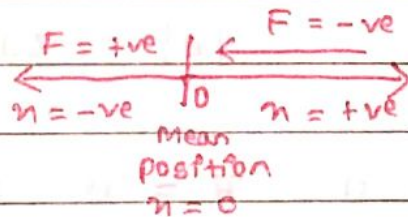 F = +ve F = -ve
x = -ve 0 x = +ve
Mean
position
x = 0